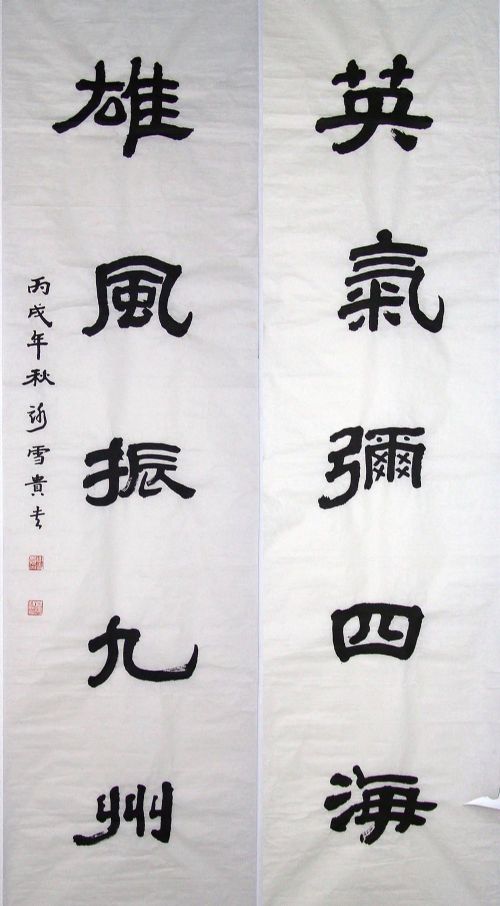 英氣彌四海
雄風振九州
丙戌年秋 雪貴